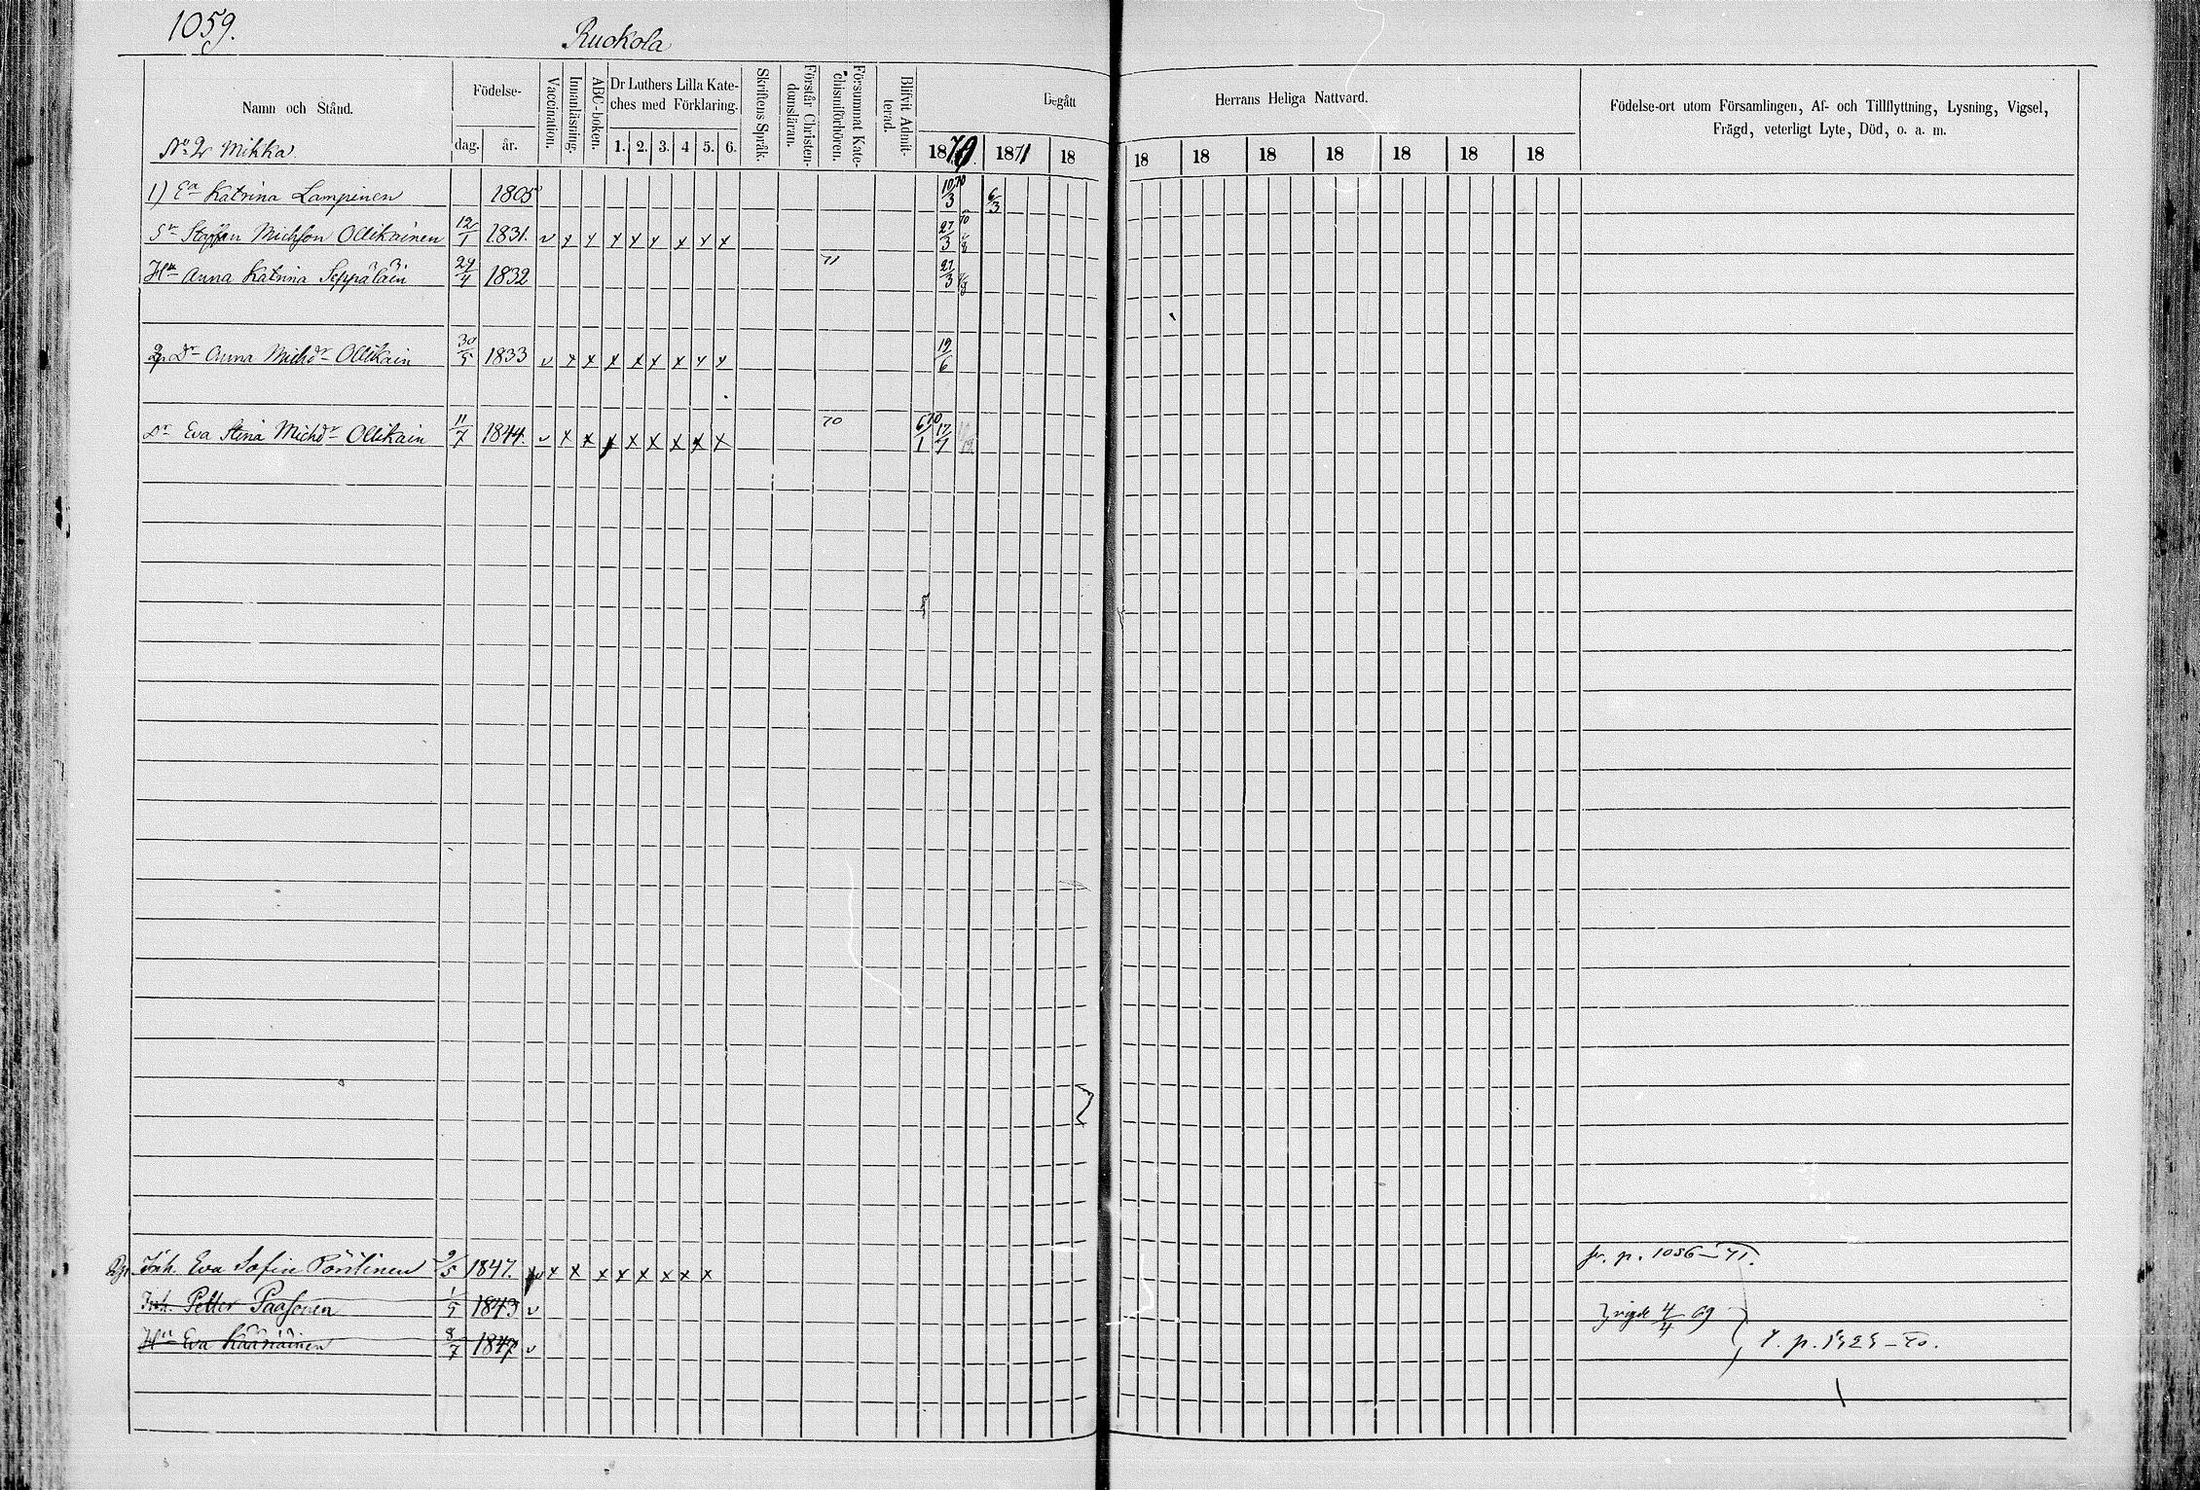 1059.
Ruokola
Namn och Stånd.
Födelse-
dag.
år.
Vaccination.
Innanläsning.
ABC-boken.
Dr Luthers Lilla Kate-
ches med Förklaring.
1. 2. 3. 4 5. 6.
Skriftens Språk.
Förstår Christen-
domsläran.
Försummat Kate-
chismiförhören.
Blifvit Admit-
terad.
Begått
Herrans Heliga Nattvard.
1870. 1871 18 18 18 18 18 18 18 18
Födelse-ort utom Församlingen, Af- och Tillflyttning, Lysning, Vigsel,
Frägd, veterligt Lyte, Död, o. a. m.
No 2 Mikka
1) Ea Katrina Lampinen 1805 10/3 70 6/3
Sn Staffan Michsson Ollikainen 12/1 1831. v x x x x x x x x 27/3 70
Hu Anna Katrina Seppäläin 29/4 1832 71 27/3
Dr Anna Michdr Ollikain 30/5 1833 v x x x x x x x x 19/6
Dr Eva Stina Michdr Ollikain 11/7 1844. v x x x x x x x x 70 6/1 17/7
Inh. Eva Sofia Pöntinen 2/5 1847. x x x x x x x x fr. p. 1056-71.
Inh. Petter Paasonen 1/5 1843 v vigde 4/4 69
Hu Eva Kääriäinen 8/7 1847 v t. p. 1525-70.